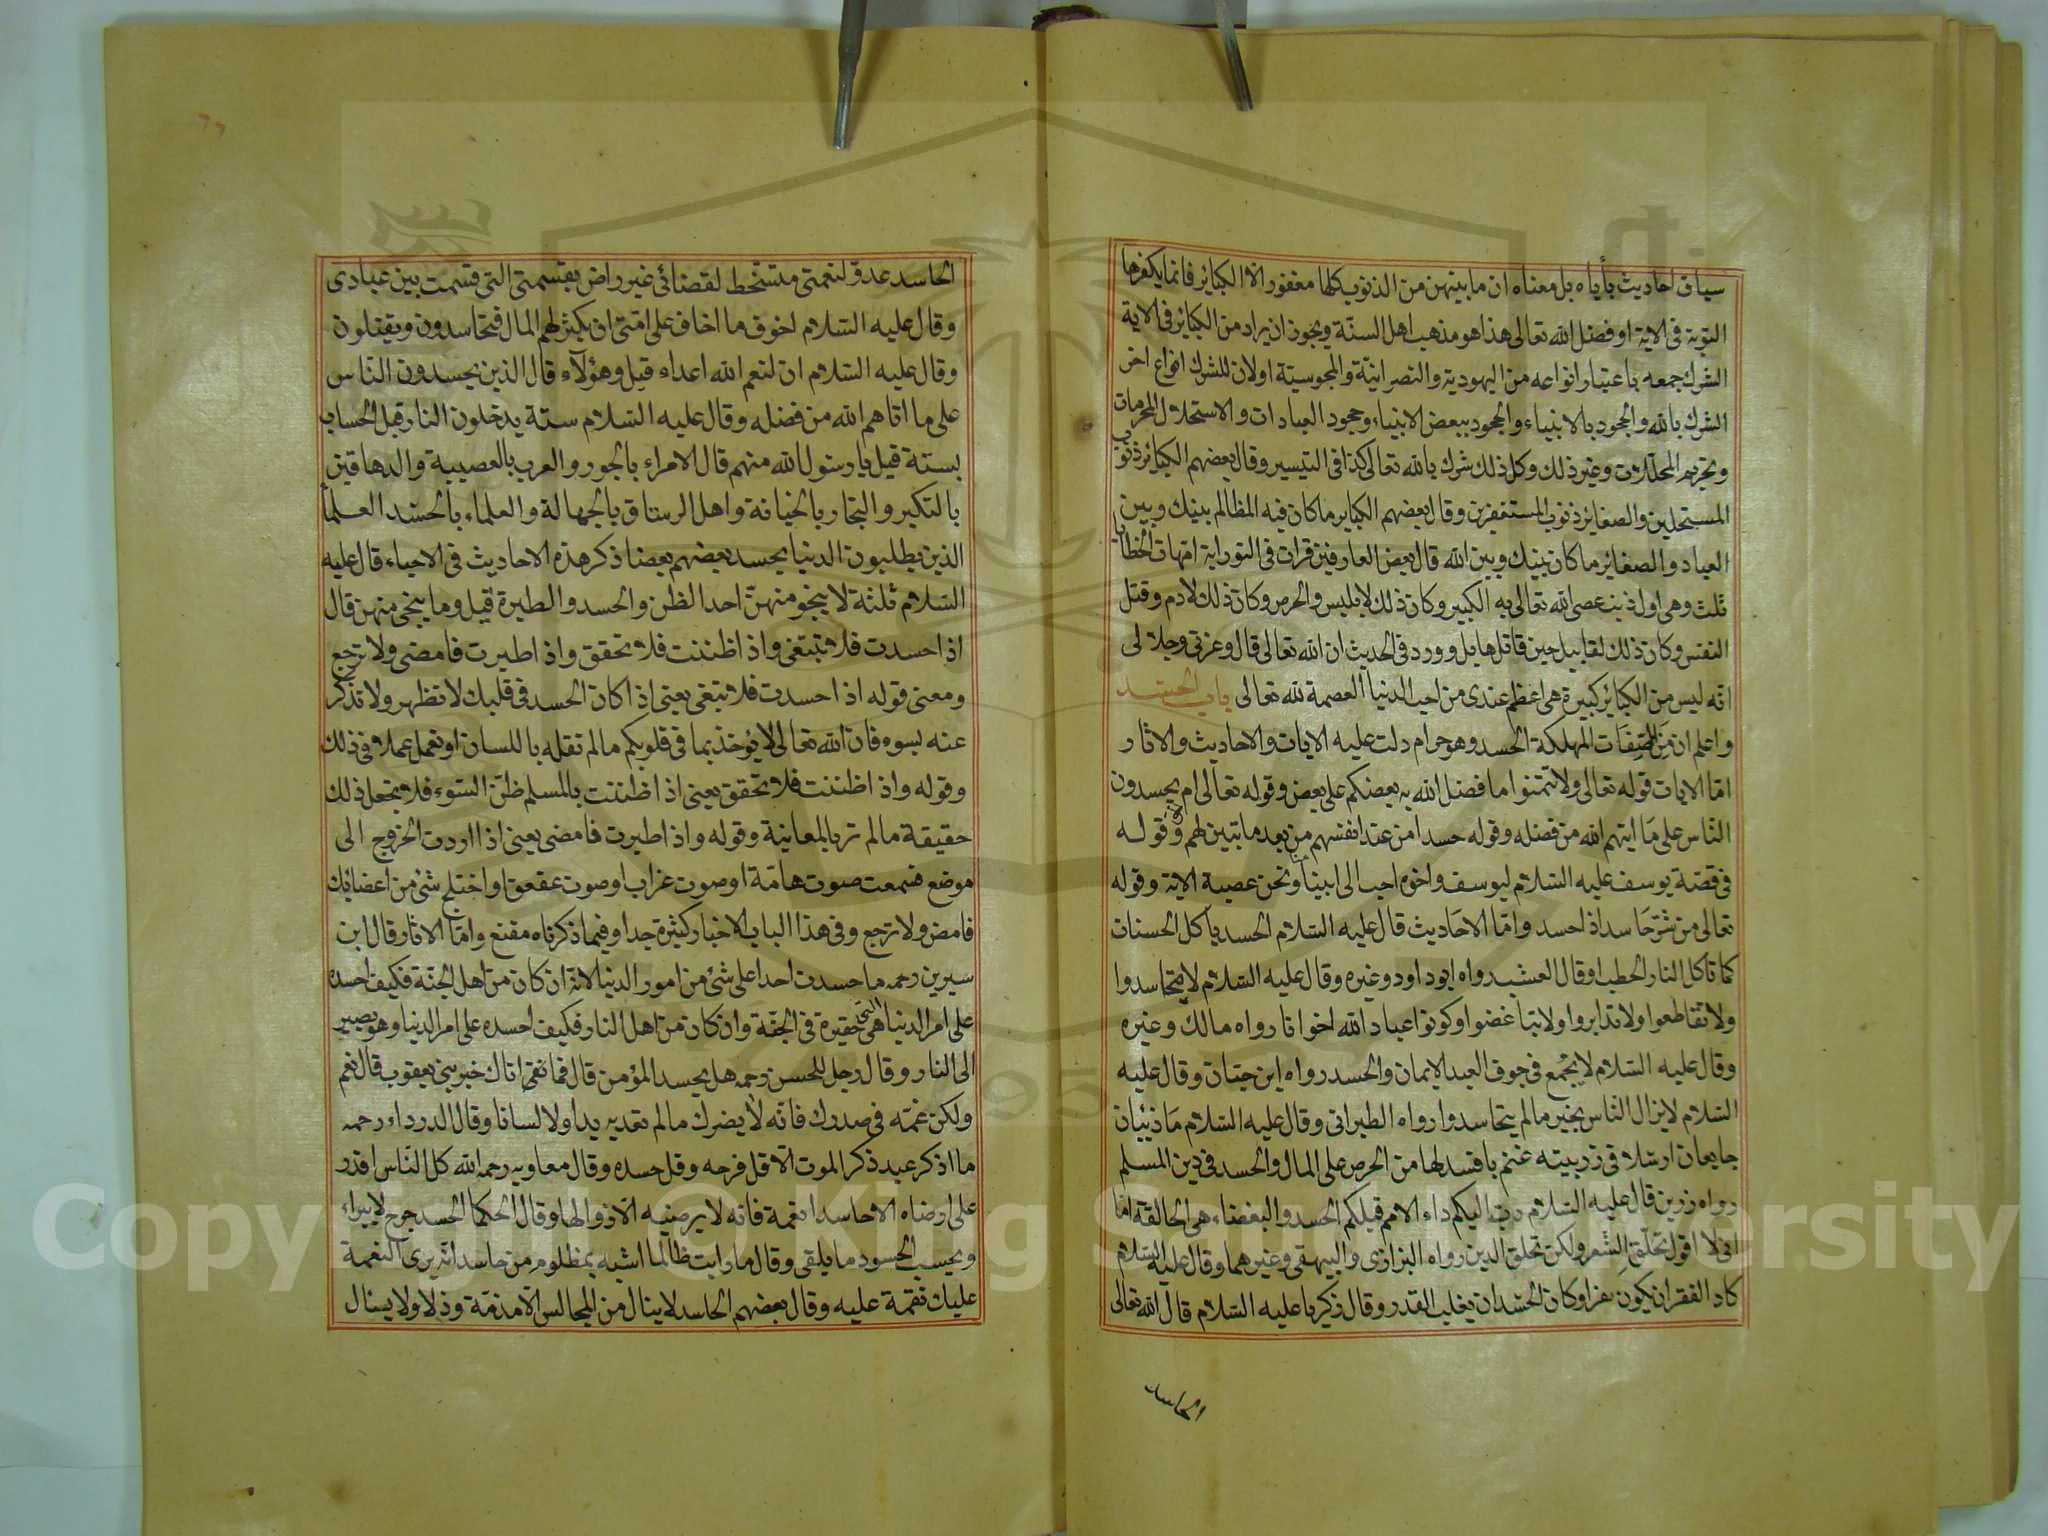 سياق احاديث يأباه بل معناه ان ما بينهن من الذنوب كلها مغفور الا الكبائر فانما يكفرها
التوبة فى الاية او فضل الله تعالى هذا هو مذهب اهل السنة ويجوز ان يراد من الكبائر فى الاية
الشرك جمعه باعتبار انواعه من اليهودية والنصرانية والمجوسية او لان للشرك انواع اخر
الشرك بالله والجحود بالانبياء والجحود ببعض الانبياء وجحود العبادات والاستحلال للمحرمات
وتحريم المحللات وغير ذلك وكل ذلك شرك بالله تعالى كذا فى التيسير وقال بعضهم الكبائر ذنوب
المستحلين والصغائر ذنوب المستغفرين وقال بعضهم الكبائر ما كان فيه المظالم بينك وبين
العباد والصغائر ما كان بينك وبين الله قال بعض العارفين قرات فى التوراية امهات الخطايا
ثلث وهى اول ذنب عصى الله تعالى به الكبر وكان ذلك لابليس والحرص وكان ذلك لادم وقتل
النفس وكان ذلك لقابيل حين قاتل هابيل وورد فى الحديث ان الله تعالى قال وعزتى وجلالى
انه ليس من الكبائر كبيرة هى اعظم عندى من احب الدنيا العصمة لله تعالى باب الحسد
واعلم ان من الصفات المهلكة الحسد وهو حرام دلت عليه الايات والاحاديث والاثار
اما الايات قوله تعالى ولا تتمنوا ما فضل الله به بعضكم على بعض وقوله تعالى ام يحسدون
الناس على ما ايتهم الله من فضله وقوله حسدا من عند انفسهم من بعد ما تبين لهم وقوله
فى قصة يوسف عليه السلام ليوسف واخوه احب الى ابينا ونحن عصبة الاية وقوله
تعالى من شر حاسد اذا حسد واما الاحاديث قال عليه السلام الحسد ياكل الحسنات
كما تاكل النار الحطب او قال العشب رواه ابو داود وغيره وقال عليه السلام لا تحاسدوا
ولا تقاطعوا ولا تدابروا ولا تباغضوا وكونوا عباد الله اخوانا رواه مالك وغيره
وقال عليه السلام لا يجمع فى جوف العبد الايمان والحسد رواه ابن حبان وقال عليه
السلام لا يزال الناس بخير ما لم يتحاسدوا رواه الطبرانى وقال عليه السلام ما ذئبان
جايعان ارسلا فى زريبة غنم بافسد لها من الحرص على المال والحسد فى دين المسلم
رواه رزين قال عليه السلام دب اليكم داء الامم قبلكم الحسد والبغضاء هى الحالقة اما
انى لا اقول تحلق الشعر ولكن تحلق الدين رواه البزازى والبيهقى وغيرهما وقال عليه السلام
كاد الفقر ان يكون كفرا وكان الحسد ان يغلب القدر وقال زكريا عليه السلام قال الله تعالى
الحاسد
الحاسد عدو لنعمتى متسخط لقضائى غير راض بقسمتى التى قسمت بين عبادى
وقال عليه السلام اخوف ما اخاف على امتى ان يكثر لهم المال فيتحاسدون ويقتلون
وقال عليه السلام ان لنعم الله اعداء قيل وهؤلاء قال الذين يحسدون الناس
على ما اتاهم الله من فضله وقال عليه السلام ستة يدخلون النار قبل الحساب
بستة قيل يا رسول الله منهم قال الامراء بالجور والعرب بالعصبية والدهاقين
بالتكبر والتجار بالخيانة واهل الرستاق بالجهالة والعلماء بالحسد العلما
الذين يطلبون الدنيا يحسد بعضهم بعضا ذكر هذه الاحاديث فى الاحياء قال عليه
السلام ثلثة لا ينجو منهن احد الظن والحسد والطيرة قيل وما ينجى منهن قال
اذا حسدت فلا تبتغى واذا ظننت فلا تحقق واذا طيرت فامضى ولا ترجع
ومعنى قوله اذا حسدت فلا تبتغى يعنى اذا كان الحسد فى قلبك لا تظهر ولا تذكر
عنه بسوء فان الله تعالى لا يؤخذ بما فى قلوبكم ما لم تقله باللسان او تعمل عملا فى ذلك
وقوله واذا ظننت فلا تحقق يعنى اذا ظننت بالمسلم ظن السوء فلا تجعل ذلك
حقيقة ما لم تر بالمعانية وقوله واذا طيرت فامضى يعنى اذا اردت الخروج الى
موضع فسمعت صوت هامة او صوت غراب او صوت عقعق او اختلج شئ من اعضائك
فامض ولا ترجع وفى هذا الباب الاخبار كثيرة جدا وفيما ذكرناه مقنع واما الاثار قال ابن
سيرين رحمه ما حسدت احدا على شئ من امور الدنيا لانه ان كان من اهل الجنة فكيف احسده
على امر الدنيا التى هى حقيرة فى الجنة وان كان من اهل النار فكيف احسده على امر الدنيا وهو يصير
الى النار وقال رجل للحسن رحمه هل يحسد المؤمن قال فما نقم اناك خبر بنى يعقوب قال نعم
ولكن غمه فى صدرك فانه لا يضرك ما لم تعد به يدا ولا لسانا وقال الدرداء رحمه
ما اذكر عبد ذكر الموت الا قل فرحه وقل حسده وقال معاويه رحمه الله كل الناس اقدر
على ارضاه الا حاسد نعمة فانه لا يرضيه الا زوالها وقال الحكما الحسد جرح لا يبراء
ويحسب الحسود ما يلقى وقال ما رايت ظالما اشبه بمظلوم من حاسد انه يرى النعمة
عليك نقمة عليه وقال بعضهم الحاسد لا ينال من المجالس الا مذمة وذلا ولا ينال
Copyright © King Saud University